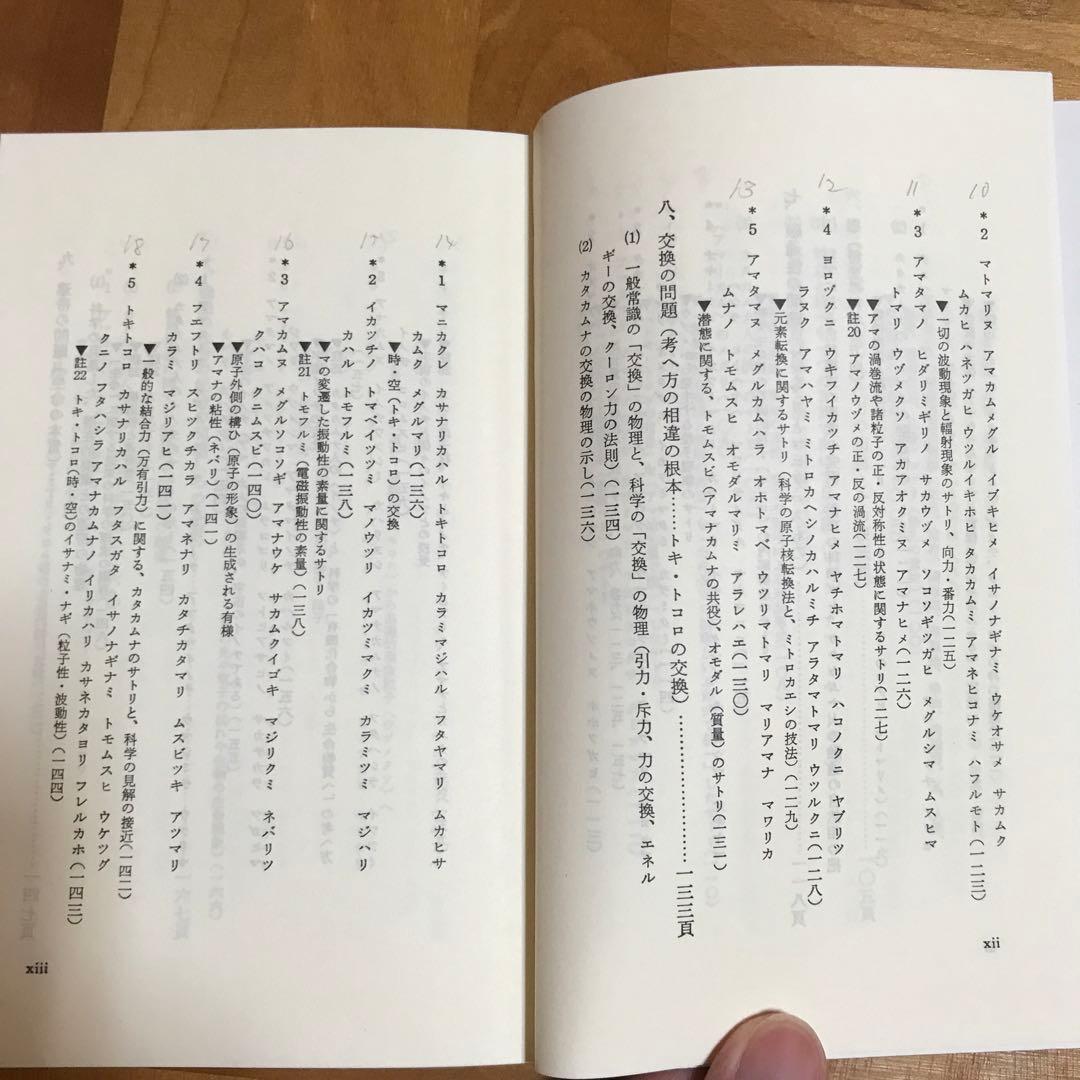 10
*2 マトマリヌ アマカムメグル イブキヒメ イサノナギナミ ウケオサメ サカムク
ムカヒ ハネツガヒ ウツルイキホヒ タカカムミ アマネヒコナミ ハフルモト(一二三)
▼一切の波動現象と輻射現象のサトリ、向力・番力(一二五)
11
*3 アマタマノ ヒダリミギリノ サカウヅメ ソコソギツガヒ メグルシマ ムスヒマ
トマリ ウヅメクソ アカアオクミヌ アマナヒメ(一二六)
▼アマの渦巻流や諸粒子の正・反対称性の状態に関するサトリ(一二七)
註20 アマノウヅメの正・反の渦流(一二七)
12
*4 ヨロヅクニ ウキフイカツチ アマナヒメ ヤチホマトマリ ハコノクニ ヤブリツ
ラヌク アマハヤミ ミトロカヘシノカハルミチ アラタマトマリ ウツルクニ(一二八)
▼元素転換に関するサトリ(科学の原子核転換法と、ミトロカエシの技法)(一二九)
13
*5 アマタマヌ メグルカムハラ オホトマベ ウツリマトマリ マリアマナ マワリカ
ムナノ トモムスヒ オモダルマリミ アラレハエ(一三〇)
▼潜態に関する、トモムスビ(アマナカムナの共役)、オモダル(質量)のサトリ(一三一)
八、交換の問題(考へ方の相違の根本……トキ・トコロの交換)……………………一三三頁
(1) 一般常識の「交換」の物理と、科学の「交換」の物理(引力・斥力、力の交換、エネル
ギーの交換、クーロン力の法則)(一三四)
(2) カタカムナの交換の物理の示し(一三六)
xii
14
*1 マニカクレ カサナリカハル トキトコロ カラミマジハル フタヤマリ ムカヒサ
カムク メグルマリ(一三六)
▼時・空(トキ・トコロ)の交換
*2 イカツチノ トマベイツツミ マノウツリ イカツミマクミ カラミツミ マジハリ
カハル トモフルミ(一三八)
▼マの変遷した振動性の素量に関するサトリ
註21 トモフルミ(電磁振動性の素量)(一三八)
16
*3 アマカムヌ メグルソコソギ アマナウケ サカムクイゴキ マジリクミ ネバリツ
クハコ クニムスビ(一四〇)
▼原子外側の構ひ(原子の形象)の生成される有様
▼アマナの粘性(ネバリ)(一四一)
17
*4 フエフトリ スヒツクチカラ アマネナリ カタチカタマリ ムスビツキ アツマリ
カラミ マジリアヒ(一四一)
▼一般的な結合力(万有引力)に関する、カタカムナのサトリと、科学の見解の接近(一四二)
18
*5 トキトコロ カサナリカハル フタスガタ イサノナギナミ トモムスヒ ウケツグ
クニノ フタハシラ アマナカムナノ イリカハリ カサネカタヨリ フレルカホ(一四三)
▼註22 トキ・トコロ(時・空)のイサナミ・ナギ(粒子性・波動性)(一四四)
xiii